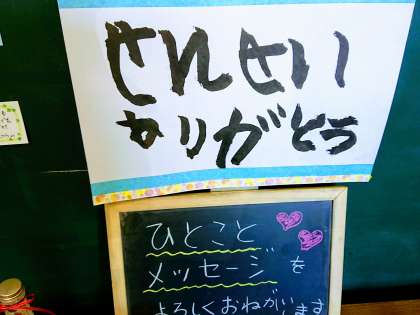 せんせい
ありがとう
ひとこと
メッセージを
よろしくおねがいします